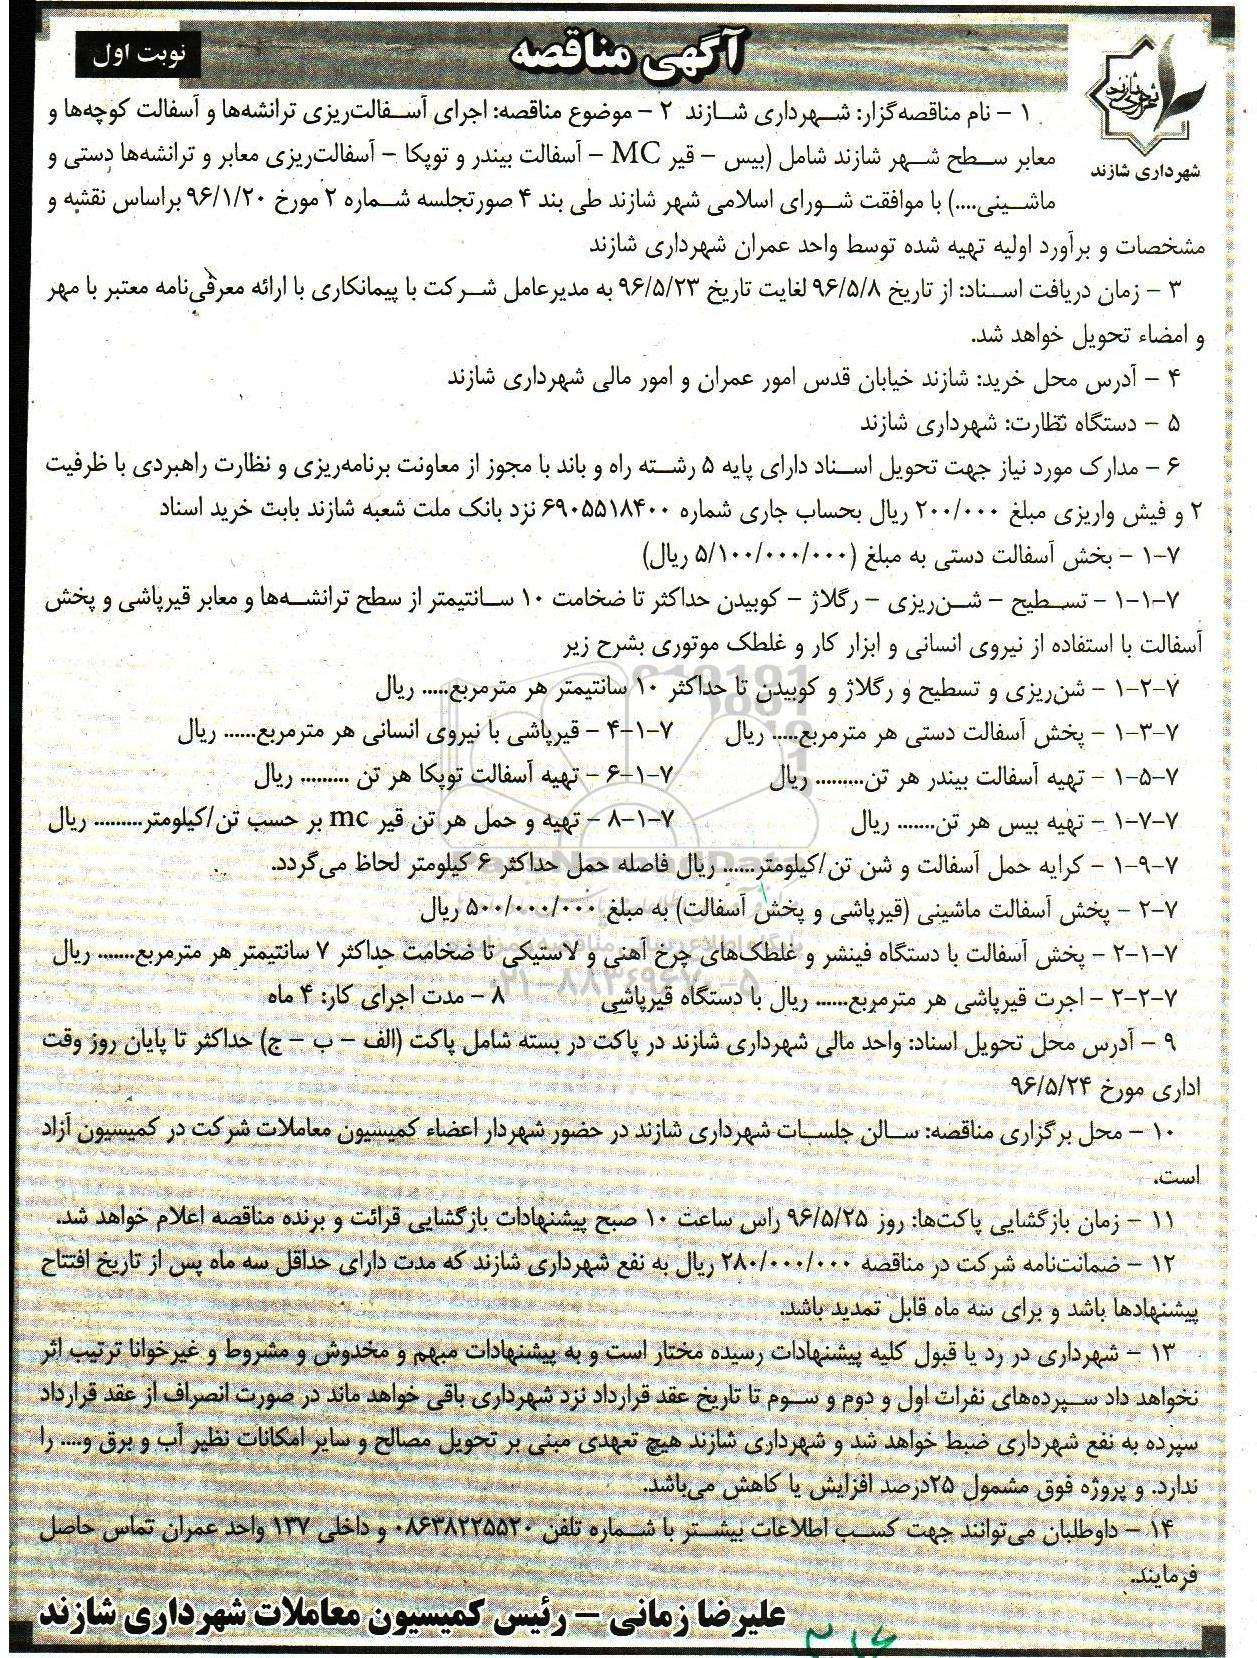 آگهی مناقصه
نوبت اول
شهرداری شازند
۱ – نام مناقصه‌گزار: شهرداری شازند ۲ – موضوع مناقصه: اجرای آسفالت‌ریزی ترانشه‌ها و آسفالت کوچه‌ها و
معابر سطح شهر شازند شامل (بیس – قیر MC – آسفالت بیندر و توپکا – آسفالت‌ریزی معابر و ترانشه‌ها دستی و
ماشینی....) با موافقت شورای اسلامی شهر شازند طی بند ۴ صورتجلسه شماره ۲ مورخ ۹۶/۱/۲۰ براساس نقشه و
مشخصات و برآورد اولیه تهیه شده توسط واحد عمران شهرداری شازند
۳ – زمان دریافت اسناد: از تاریخ ۹۶/۵/۸ لغایت تاریخ ۹۶/۵/۲۳ به مدیرعامل شرکت با پیمانکاری با ارائه معرفی‌نامه معتبر با مهر
و امضاء تحویل خواهد شد.
۴ – آدرس محل خرید: شازند خیابان قدس امور عمران و امور مالی شهرداری شازند
۵ – دستگاه نظارت: شهرداری شازند
۶ – مدارک مورد نیاز جهت تحویل اسناد دارای پایه ۵ رشته راه و باند با مجوز از معاونت برنامه‌ریزی و نظارت راهبردی با ظرفیت
۲ و فیش واریزی مبلغ ۲۰۰/۰۰۰ ریال بحساب جاری شماره ۶۹۰۵۵۱۸۴۰۰ نزد بانک ملت شعبه شازند بابت خرید اسناد
۱-۷ – بخش آسفالت دستی به مبلغ (۵/۱۰۰/۰۰۰/۰۰۰ ریال)
۱-۱-۷ – تسطیح – شن‌ریزی – رگلاژ – کوبیدن حداکثر تا ضخامت ۱۰ سانتیمتر از سطح ترانشه‌ها و معابر قیرپاشی و پخش
آسفالت با استفاده از نیروی انسانی و ابزار کار و غلطک موتوری بشرح زیر
۱-۲-۷ – شن‌ریزی و تسطیح و رگلاژ و کوبیدن تا حداکثر ۱۰ سانتیمتر هر مترمربع..... ریال
۱-۳-۷ – پخش آسفالت دستی هر مترمربع..... ریال ۴-۱-۷ – قیرپاشی با نیروی انسانی هر مترمربع...... ریال
۱-۵-۷ – تهیه آسفالت بیندر هر تن......... ریال ۶-۱-۷ – تهیه آسفالت توپکا هر تن ......... ریال
۱-۷-۷ – تهیه بیس هر تن....... ریال ۸-۱-۷ – تهیه و حمل هر تن قیر mc بر حسب تن/کیلومتر......... ریال
۱-۹-۷ – کرایه حمل آسفالت و شن تن/کیلومتر...... ریال فاصله حمل حداکثر ۶ کیلومتر لحاظ می‌گردد.
۲-۷ – پخش آسفالت ماشینی (قیرپاشی و پخش آسفالت) به مبلغ ۵۰۰/۰۰۰/۰۰۰ ریال
۲-۱-۷ – پخش آسفالت با دستگاه فینشر و غلطک‌های چرخ آهنی و لاستیکی تا ضخامت حداکثر ۷ سانتیمتر هر مترمربع....... ریال
۲-۲-۷ – اجرت قیرپاشی هر مترمربع...... ریال با دستگاه قیرپاشی ۸ – مدت اجرای کار: ۴ ماه
۹ – آدرس محل تحویل اسناد: واحد مالی شهرداری شازند در پاکت در بسته شامل پاکت (الف – ب – ج) حداکثر تا پایان روز وقت
اداری مورخ ۹۶/۵/۲۴
۱۰ – محل برگزاری مناقصه: سالن جلسات شهرداری شازند در حضور شهردار اعضاء کمیسیون معاملات شرکت در کمیسیون آزاد
است.
۱۱ – زمان بازگشایی پاکت‌ها: روز ۹۶/۵/۲۵ راس ساعت ۱۰ صبح پیشنهادات بازگشایی قرائت و برنده مناقصه اعلام خواهد شد.
۱۲ – ضمانت‌نامه شرکت در مناقصه ۲۸۰/۰۰۰/۰۰۰ ریال به نفع شهرداری شازند که مدت دارای حداقل سه ماه پس از تاریخ افتتاح
پیشنهادها باشد و برای سه ماه قابل تمدید باشد.
۱۳ – شهرداری در رد یا قبول کلیه پیشنهادات رسیده مختار است و به پیشنهادات مبهم و مخدوش و مشروط و غیرخوانا ترتیب اثر
نخواهد داد سپرده‌های نفرات اول و دوم و سوم تا تاریخ عقد قرارداد نزد شهرداری باقی خواهد ماند در صورت انصراف از عقد قرارداد
سپرده به نفع شهرداری ضبط خواهد شد و شهرداری شازند هیچ تعهدی مبنی بر تحویل مصالح و سایر امکانات نظیر آب و برق و.... را
ندارد. و پروژه فوق مشمول ۲۵درصد افزایش یا کاهش می‌باشد.
۱۴ – داوطلبان می‌توانند جهت کسب اطلاعات بیشتر با شماره تلفن ۰۸۶۳۸۲۲۵۵۲۰ و داخلی ۱۳۷ واحد عمران تماس حاصل
فرمایند.
علیرضا زمانی – رئیس کمیسیون معاملات شهرداری شازند